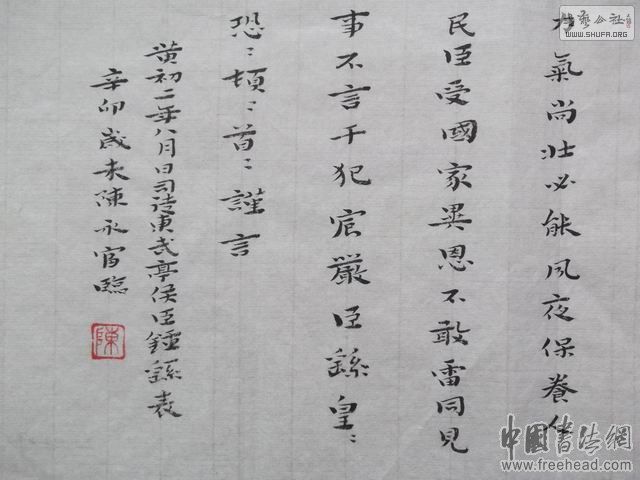 力氣尚壯必能夙夜保養人
民臣受國家異恩不敢雷同見
事不言干犯宸嚴臣繇皇〻
恐〻頓〻首〻謹言
黃初二年八月日司徒東武亭侯臣鍾繇表
辛卯歲末陳永富臨
陳
書藝公社
WWW.SHUFA.ORG
中國書法網
www.freehead.com